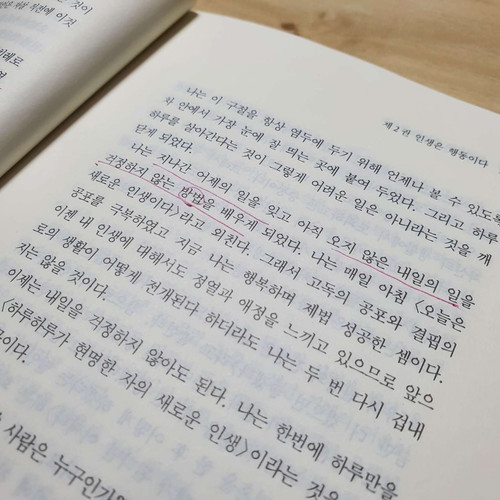 것이
이것
제 2 권 인생은 행동이다
나는 이 구절을 항상 염두에 두기 위해 언제나 볼 수 있도록
차 안에서 가장 눈에 잘 띄는 곳에 붙여 두었다. 그리고 하루
하루를 살아간다는 것이 그렇게 어려운 일은 아니라는 것을 깨
닫게 되었다.
나는 지나간 어제의 일을 잊고 아직 오지 않은 내일의 일을
걱정하지 않는 방법을 배우게 되었다. 나는 매일 아침 <오늘은
새로운 인생이다>라고 외친다. 그래서 고독의 공포와 결핍의
공포를 극복하였고 지금 나는 행복하며 제법 성공한 셈이다.
이젠 내 인생에 대해서도 정열과 애정을 느끼고 있으므로 앞으
로의 생활이 어떻게 전개된다 하더라도 나는 두 번 다시 겁내
지는 않을 것이다.
이제는 내일을 걱정하지 않아도 된다. 나는 한번에 하루만을
<하루하루가 현명한 자의 새로운 인생>이라는 것을
사람은 누구인가